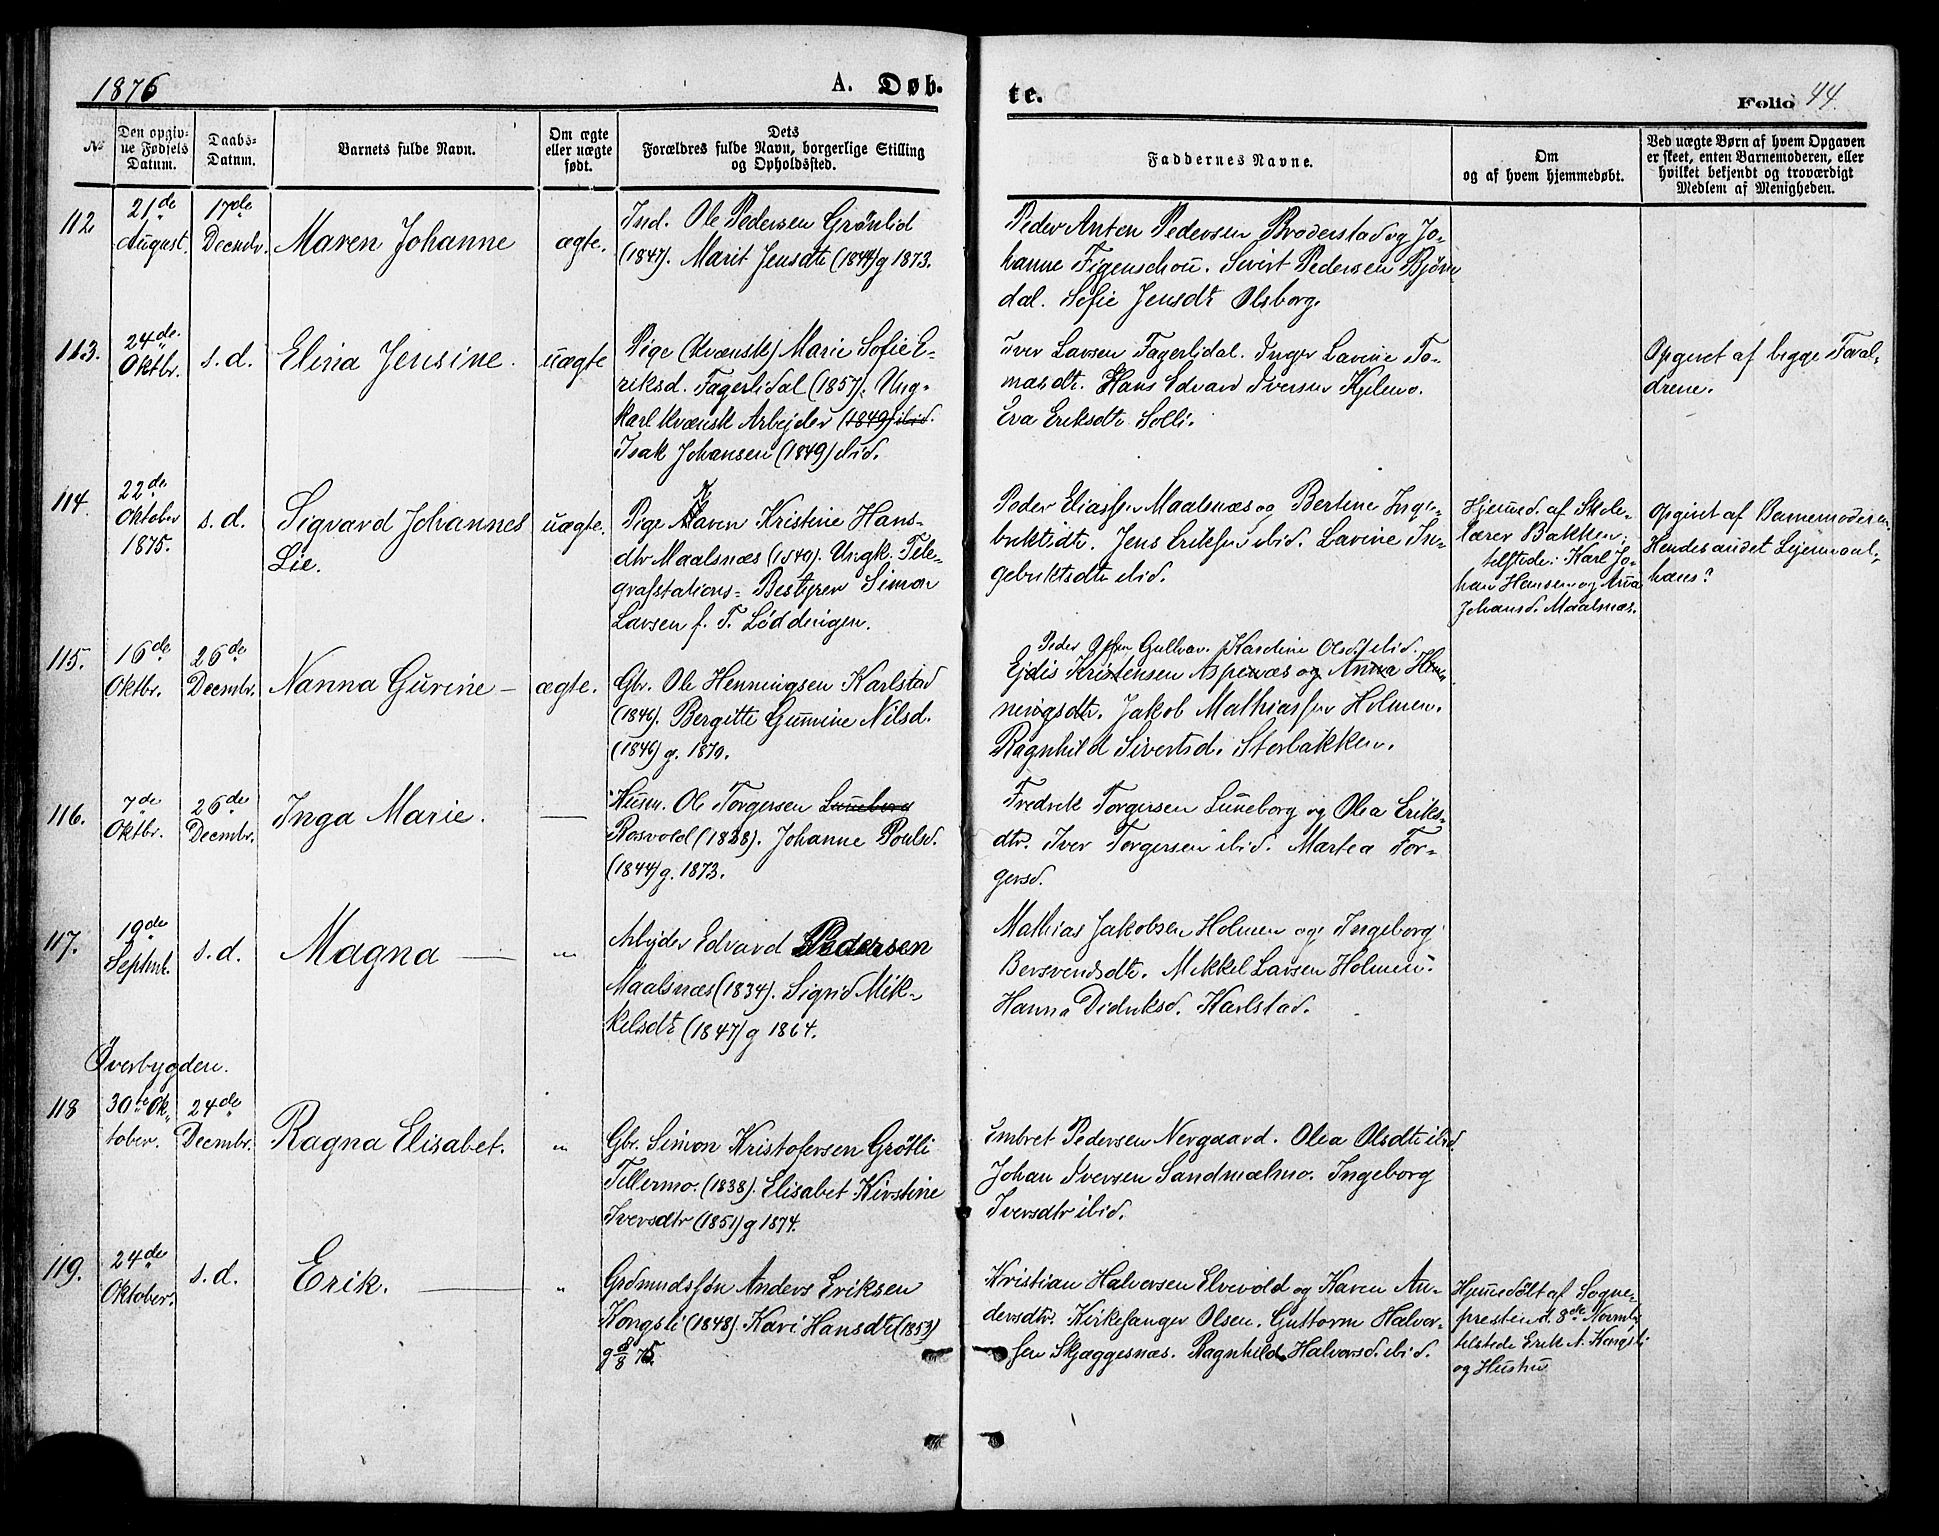 1876
A. Døb-
te.
Folio 44.
No
Den opgiv-
ne Fødsels
Datum.
Daabs-
Datum.
Barnets fulde Navn.
Om ægte
eller uægte
født.
Dets
Forældres fulde Navn, borgerlige Stilling
og Opholdssted.
Faddernes Navne.
Om
og af hvem hjemmedøbt.
Ved uægte Børn af hvem Opgaven
er skeet, enten Barnemoderen, eller
hvilket bekjendt og troværdigt
Medlem af Menigheden.
112
21de
August.
17de
Decmbr.
Maren Johanne
ægte.
Ind. Ole Pedersen Grønlid
(1847). Marit Jensdtr (1844) g 1873.
Peder Anton Pedersen Broderstad og Jo-
hanne Figenschou. Sivert Pedersen Bjørn
dal. Sofie Jensdtr Olsborg.
113.
24de
Oktbr.
s.d.
Elina Jensine.
uægte
Pige (kvænsk) Marie Sofie E-
riksd. Fagerlidal (1857). Ung-
karl kvænsk Arbejder (1849) ibid.
Isak Johansen (1849) ibid.
Iver Larsen Fagerlidal. Inger Lavine To-
masdtr. Hans Edvard Iversen Kjelmo.
Eva Eriksdtr Solli.
Opgivet af begge Foræl-
drene.
114.
22de
Oktober
1875.
s.d.
Sigvard Johannes
Lie.
uægte.
Pige Maren Kristine Hans-
dtr Maalsnæs (1849). Ungk. Tele-
grafstations-Bestyrer Simon
Larsen f. T. Løddingen.
Peder Eliassen Maalsnæs og Bertine Inge-
briktsdtr. Jens Eriksen ibid. Lavine In-
gebriktsdtr ibid.
Hjemmed. af Skole-
lærer Bakken,
tilstede: Karl Jo-
han Hansen og Anna
Johansd. Maalsnæs.
Opgivet af Barnemoderen.
Hendes andet Lejermaal,
hans?
115.
16de
Oktbr.
26de
Decmbr.
Nanna Gurine —
ægte.
Gbr. Ole Henningsen Karlstad
(1846). Bergitte Gurine Nilsd.
(1846) g. 1870.
Peder Olsen Gullhav. Kardine Olsd ibid.
Ejdis Kristensen Aspenæs og Anna Hen-
ningsdtr. Jakob Mathiassen Holmen.
Ragnhild Sivertsd. Storbakken.
116.
7de
Oktbr.
26de
Decmbr.
Inga Marie.
—
Husm. Ole Torgersen Luneborg
Rosvold (1838). Johanne Poulsd.
(1844) g. 1873.
Fredrik Torgersen Luneborg og Olea Eriks-
dtr. Iver Torgersen ibid. Martea Tor-
gersd.
117.
19de
Septmb.
s.d.
Magna —
"
Arbejder Edvard Pedersen
Maalsnæs (1834). Sigrid Mik-
kelsdtr (1847) g 1864.
Mathias Jakobsen Holmen og Ingeborg
Bersvendsdtr. Mikkel Larsen Holmen.
Hanna Didriksd. Karlstad.
Øverbygden.
118
30te Ok-
tober.
24de
Decmbr.
Ragna Elisabet.
"
Gbr. Simon Kristofersen Grøtli
Fellermo. (1838). Elisabet Kirstine
Iversdtr (1851) g 1874.
Embret Pedersen Nergaard. Olea Olsdtr ibid.
Johan Iversen Sandmælmo. Ingeborg
Iversdtr ibid.
119.
24de
Oktober.
s.d.
Erik. —
"
Grdmandssøn Anders Eriksen
Kongsli (1848). Kari Hansdtr (1853)
g 8/8 75.
Kristian Halvorsen Elvevold og Karen An-
dersdtr. Kirkesanger Olsen. Guttorm Halvor-
sen Skjæggesnæs. Ragnhild Halvorsd. ibid.
Hjemmedøbt af Sogne-
presten d. 8de Novmbr
tilstede Erik A. Kongsli
og Hustru